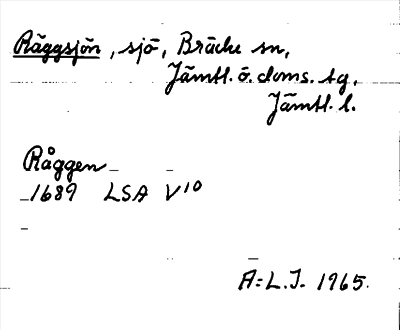 Räggsjön, sjö, Bräcke sn,
Jämtl. ö. doms. tg,
Jämtl. l.
Råggen
1689 LSA V10
A:L.J. 1965.